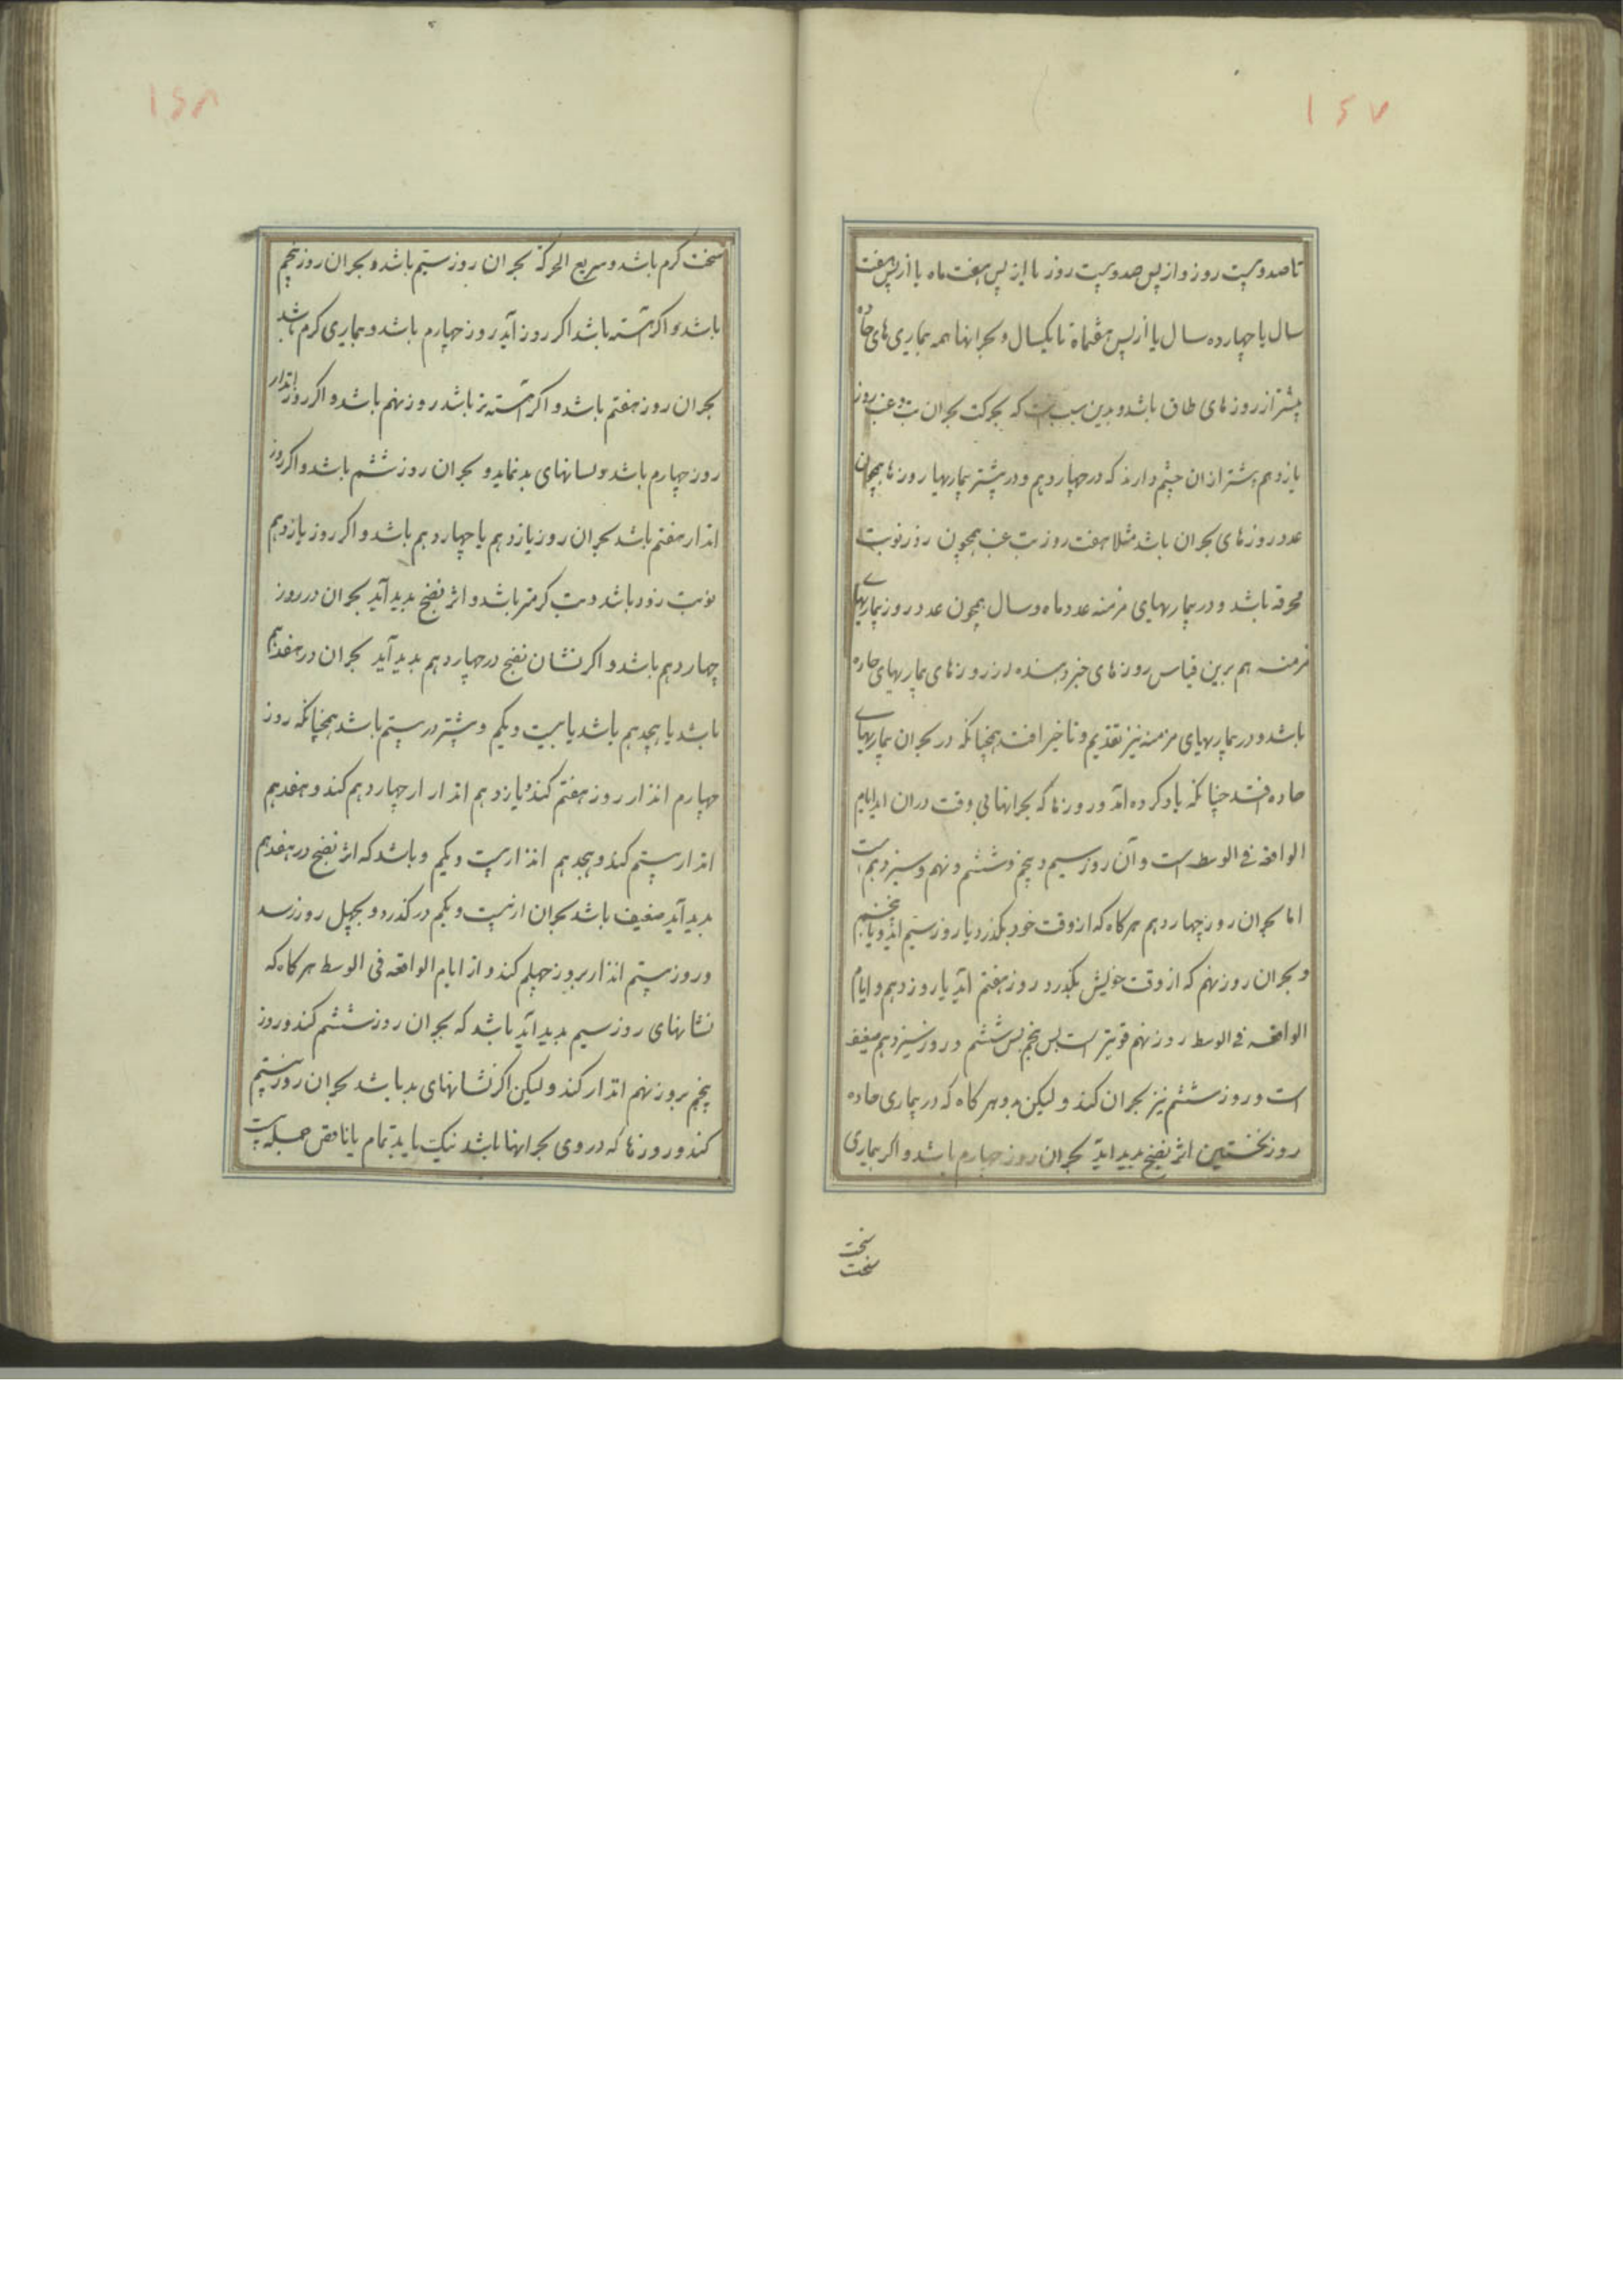 ۱۶۷
تا صد و بیست روز و از پس صد و بیست روز یا از پس هفت ماه یا از پس هفت
سال یا چهارده سال یا از پس هفتماه تا یکسال و بحرانها همه بیماری های حاده
بیشتر از روزهای طاق باشد و بدین سبب است که بحرکت بحران تب غب روز
یازدهم بیشتر از ان چشم دارند که در چهاردهم و در بیشتر بیماریها روزها همچون
عدد روزهای بحران باشد مثلا هفت روز تب غب همچون روز نوبت
محرقه باشد و در بیماریهای مزمنه عدد ماه و سال همچون عدد روز بیماریهای
مزمنه هم برین قیاس روزهای خبر دهنده در روزهای بیماریهای حاده
باشد و در بیماریهای مزمنه نیز تقدیم و تاخیر افتد همچنانکه در بحران بیماریهای
حاده افتد چنانکه یاد کرده اند و روزها که بحرانها بی وقت دران اید ایام
الواقعه فی الوسط است و آن روز سیم و پنجم و ششم و نهم و سیزدهم است
اما بحران روز چهاردهم هرکاه که از وقت خود بکذرد یا روز سیم اید و یا پنجم
و بحران روز نهم که از وقت خویش بکذرد روز هفتم آید یا روز دهم و ایام
الواقعه فی الوسط روز نهم قویتر است پس پنجم پس ششم و روز سیزدهم ضعیف
است و روز ششم نیز بحران کند و لیکن بد و هرکاه که در بیماری حاده
روز نخستین اثر نضج بدید اید بحران روز چهارم باشد و اکر بیماری
سخت
سخت
۱۶۸
سخت کرم باشد و سریع الحرکة بحران روز سیم باشد و بحران روز پنجم
باشد و اکر آهسته باشد اکر روز آید روز چهارم باشد و بیماری کرم باشد
بحران روز هفتم باشد و اکر آهسته تر باشد روز نهم باشد و اکر روز انذار
روز چهارم باشد و نسانهای بد نماید و بحران روز ششم باشد و اکر روز
انذار هفتم باشد بحران روز یازدهم یا چهاردهم باشد و اکر روز یازدهم
نوبت زود باشد و تب کرمتر باشد و اثر نضج بدید آید بحران در روز
چهاردهم باشد و اکر نشان نضج در چهاردهم بدید آید بحران در هفدهم
باشد یا هجدهم باشد یا بیست و یکم و بیشتر در بیستم باشد همچنانکه روز
چهارم انذار روز هفتم کند و یازدهم انذار از چهاردهم کند و هفدهم
انذار بیستم کند و هجدهم انذار بیست و یکم و باشد که اثر نضج در هفدهم
بدید آید ضعیف باشد بحران از بیست و یکم در کذرد و بچهل روز رسد
و روز بیستم انذار بروز چهلم کند و از ایام الواقعه فی الوسط هرکاه که
نشانهای روز سیم بدید آید باشد که بحران روز ششم کند و روز
پنجم بروز نهم انذار کند و لیکن اکر نشانهای بد باشد بحران روز بیستم
کند و روزها که در وی بحرانها باشد نیک یا بد تمام یا ناقص جمله بیست